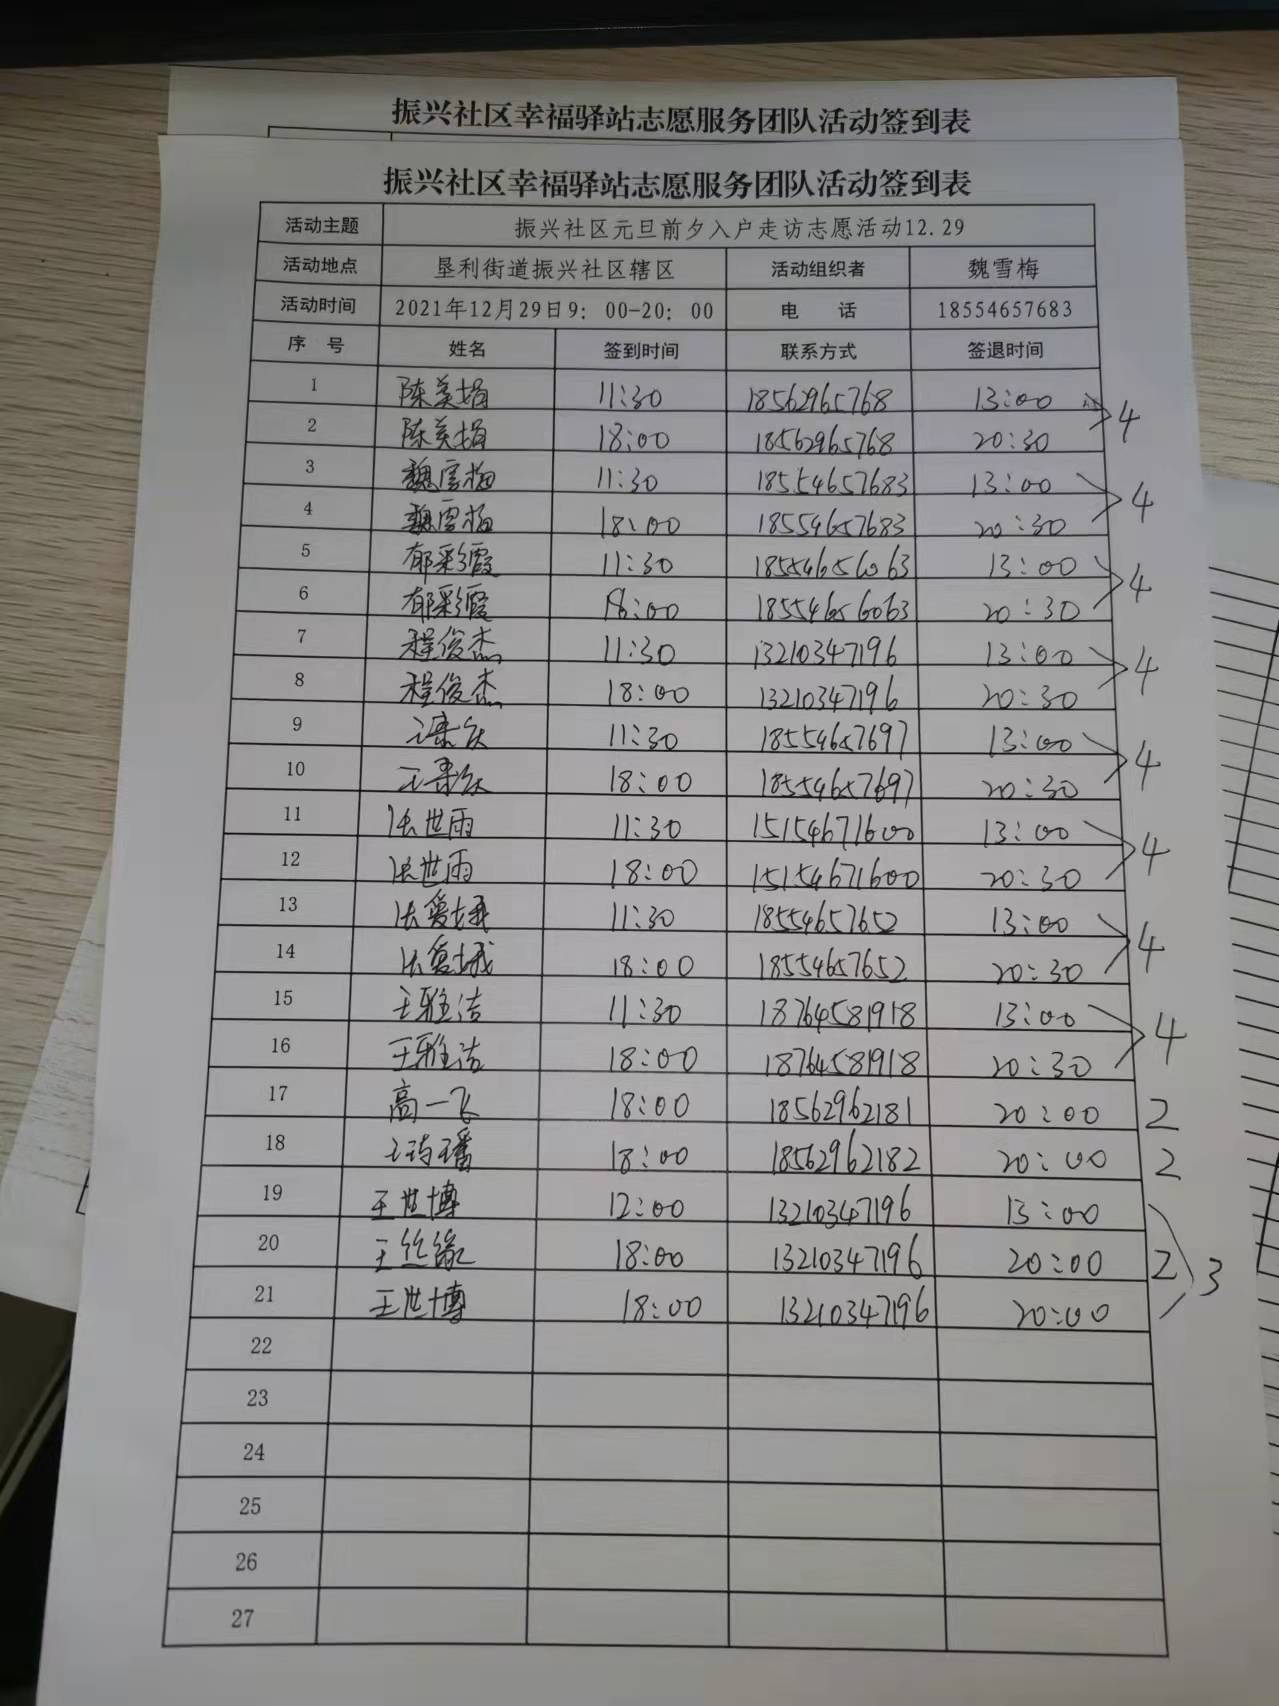 振兴社区幸福驿站志愿服务团队活动签到表
振兴社区幸福驿站志愿服务团队活动签到表
活动主题 振兴社区元旦前夕入户走访志愿活动12.29
活动地点 垦利街道振兴社区辖区 活动组织者 魏雪梅
活动时间 2021年12月29日9：00-20：00 电 话 18554657683
序 号 姓名 签到时间 联系方式 签退时间
1 陈美娟 11:30 18562965768 13:00 4
2 陈美娟 18:00 18562965768 20:30
3 魏雪梅 11:30 18554657683 13:00 4
4 魏雪梅 18:00 18554657683 20:30
5 郁彩霞 11:30 18554656063 13:00 4
6 郁彩霞 18:00 18554656063 20:30
7 程俊杰 11:30 13210347196 13:00 4
8 程俊杰 18:00 13210347196 20:30
9 11:30 18554657697 13:00 4
10 18:00 18554657697 20:30
11 张世雨 11:30 15154671600 13:00 4
12 张世雨 18:00 15154671600 20:30
13 张爱城 11:30 18554657652 13:00 4
14 张爱城 18:00 18554657652 20:30
15 王雅洁 11:30 18764581918 13:00 4
16 王雅洁 18:00 18764581918 20:30
17 高一飞 18:00 18562962181 20:00 2
18 18:00 18562962182 20:00 2
19 王世博 12:00 13210347196 13:00
20 王丝缘 18:00 13210347196 20:00 2 3
21 王世博 18:00 13210347196 20:00
22
23
24
25
26
27